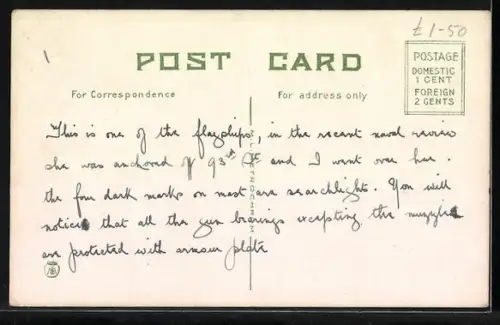 £1-50
1
POST CARD
POSTAGE
DOMESTIC
1 CENT
FOREIGN
2 CENTS
For Correspondence
For address only
This is one of the flagships, in the recent naval review
she was anchored off 93rd St and I went over her.
the four dark marks on mast are searchlights. You will
notice that all the gun bearings excepting the muzzles
are protected with armour plate